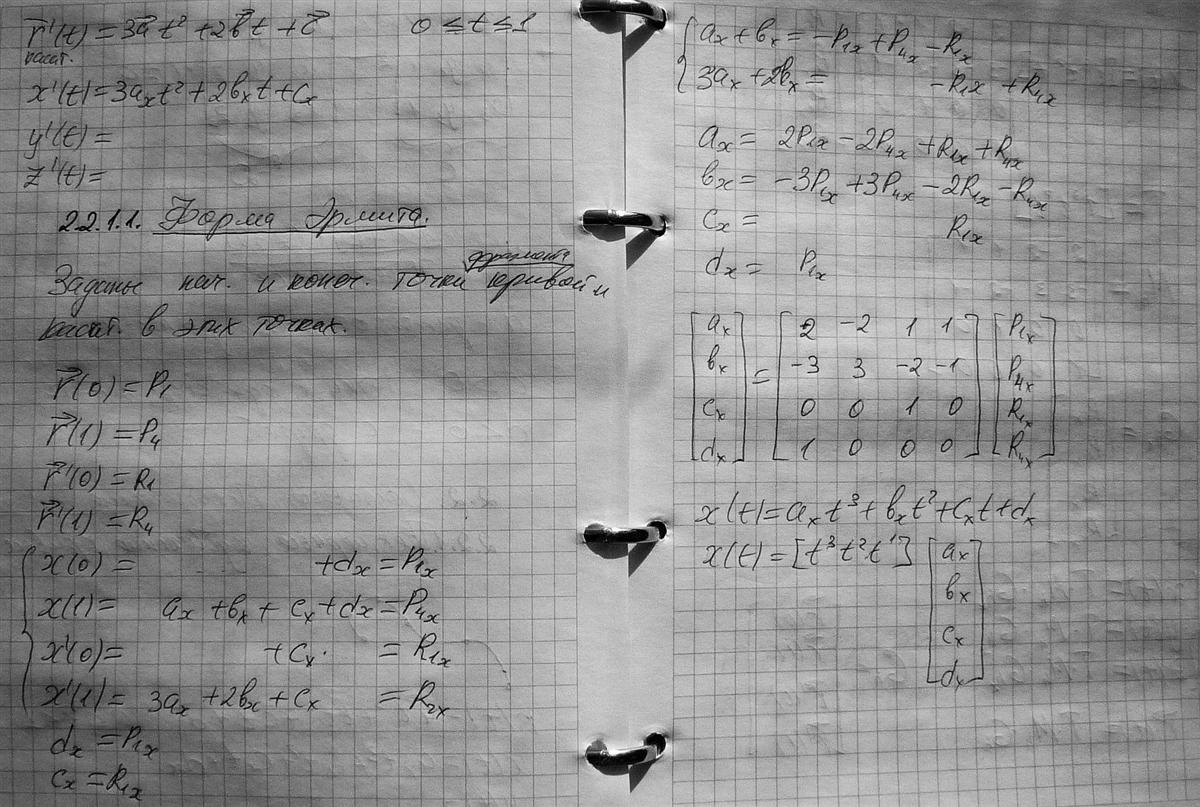 r⃗'(t) = 3a⃗t² + 2b⃗t + c⃗ 0 ≤ t ≤ 1
касат.
x'(t) = 3aₓt² + 2bₓt + cₓ
y'(t) =
z'(t) =
2.2.1.1. Форма Эрмита.
фрагмента
Заданы нач. и конеч. точки кривой и
касат. в этих точках.
r⃗(0) = P₁
r⃗(1) = P₄
r⃗'(0) = R₁
r⃗'(1) = R₄
x(0) = +dₓ = P₁ₓ
x(1) = aₓ + bₓ + cₓ + dₓ = P₄ₓ
x'(0) = + cₓ. = R₁ₓ
x'(1) = 3aₓ + 2bₓ + cₓ = R₄ₓ
dₓ = P₁ₓ
cₓ = R₁ₓ
aₓ + bₓ = -P₁ₓ + P₄ₓ - R₁ₓ
3aₓ + 2bₓ = - R₁ₓ + R₄ₓ
aₓ = 2P₁ₓ - 2P₄ₓ + R₁ₓ + R₄ₓ
bₓ = -3P₁ₓ + 3P₄ₓ - 2R₁ₓ - R₄ₓ
cₓ = R₁ₓ
dₓ = P₁ₓ
[aₓ] [2 -2 1 1] [P₁ₓ]
[bₓ] = [-3 3 -2 -1] [P₄ₓ]
[cₓ] [0 0 1 0] [R₁ₓ]
[dₓ] [1 0 0 0] [R₄ₓ]
x(t) = aₓt³ + bₓt² + cₓt + dₓ
x(t) = [t³ t² t 1] [aₓ
bₓ
cₓ
dₓ]